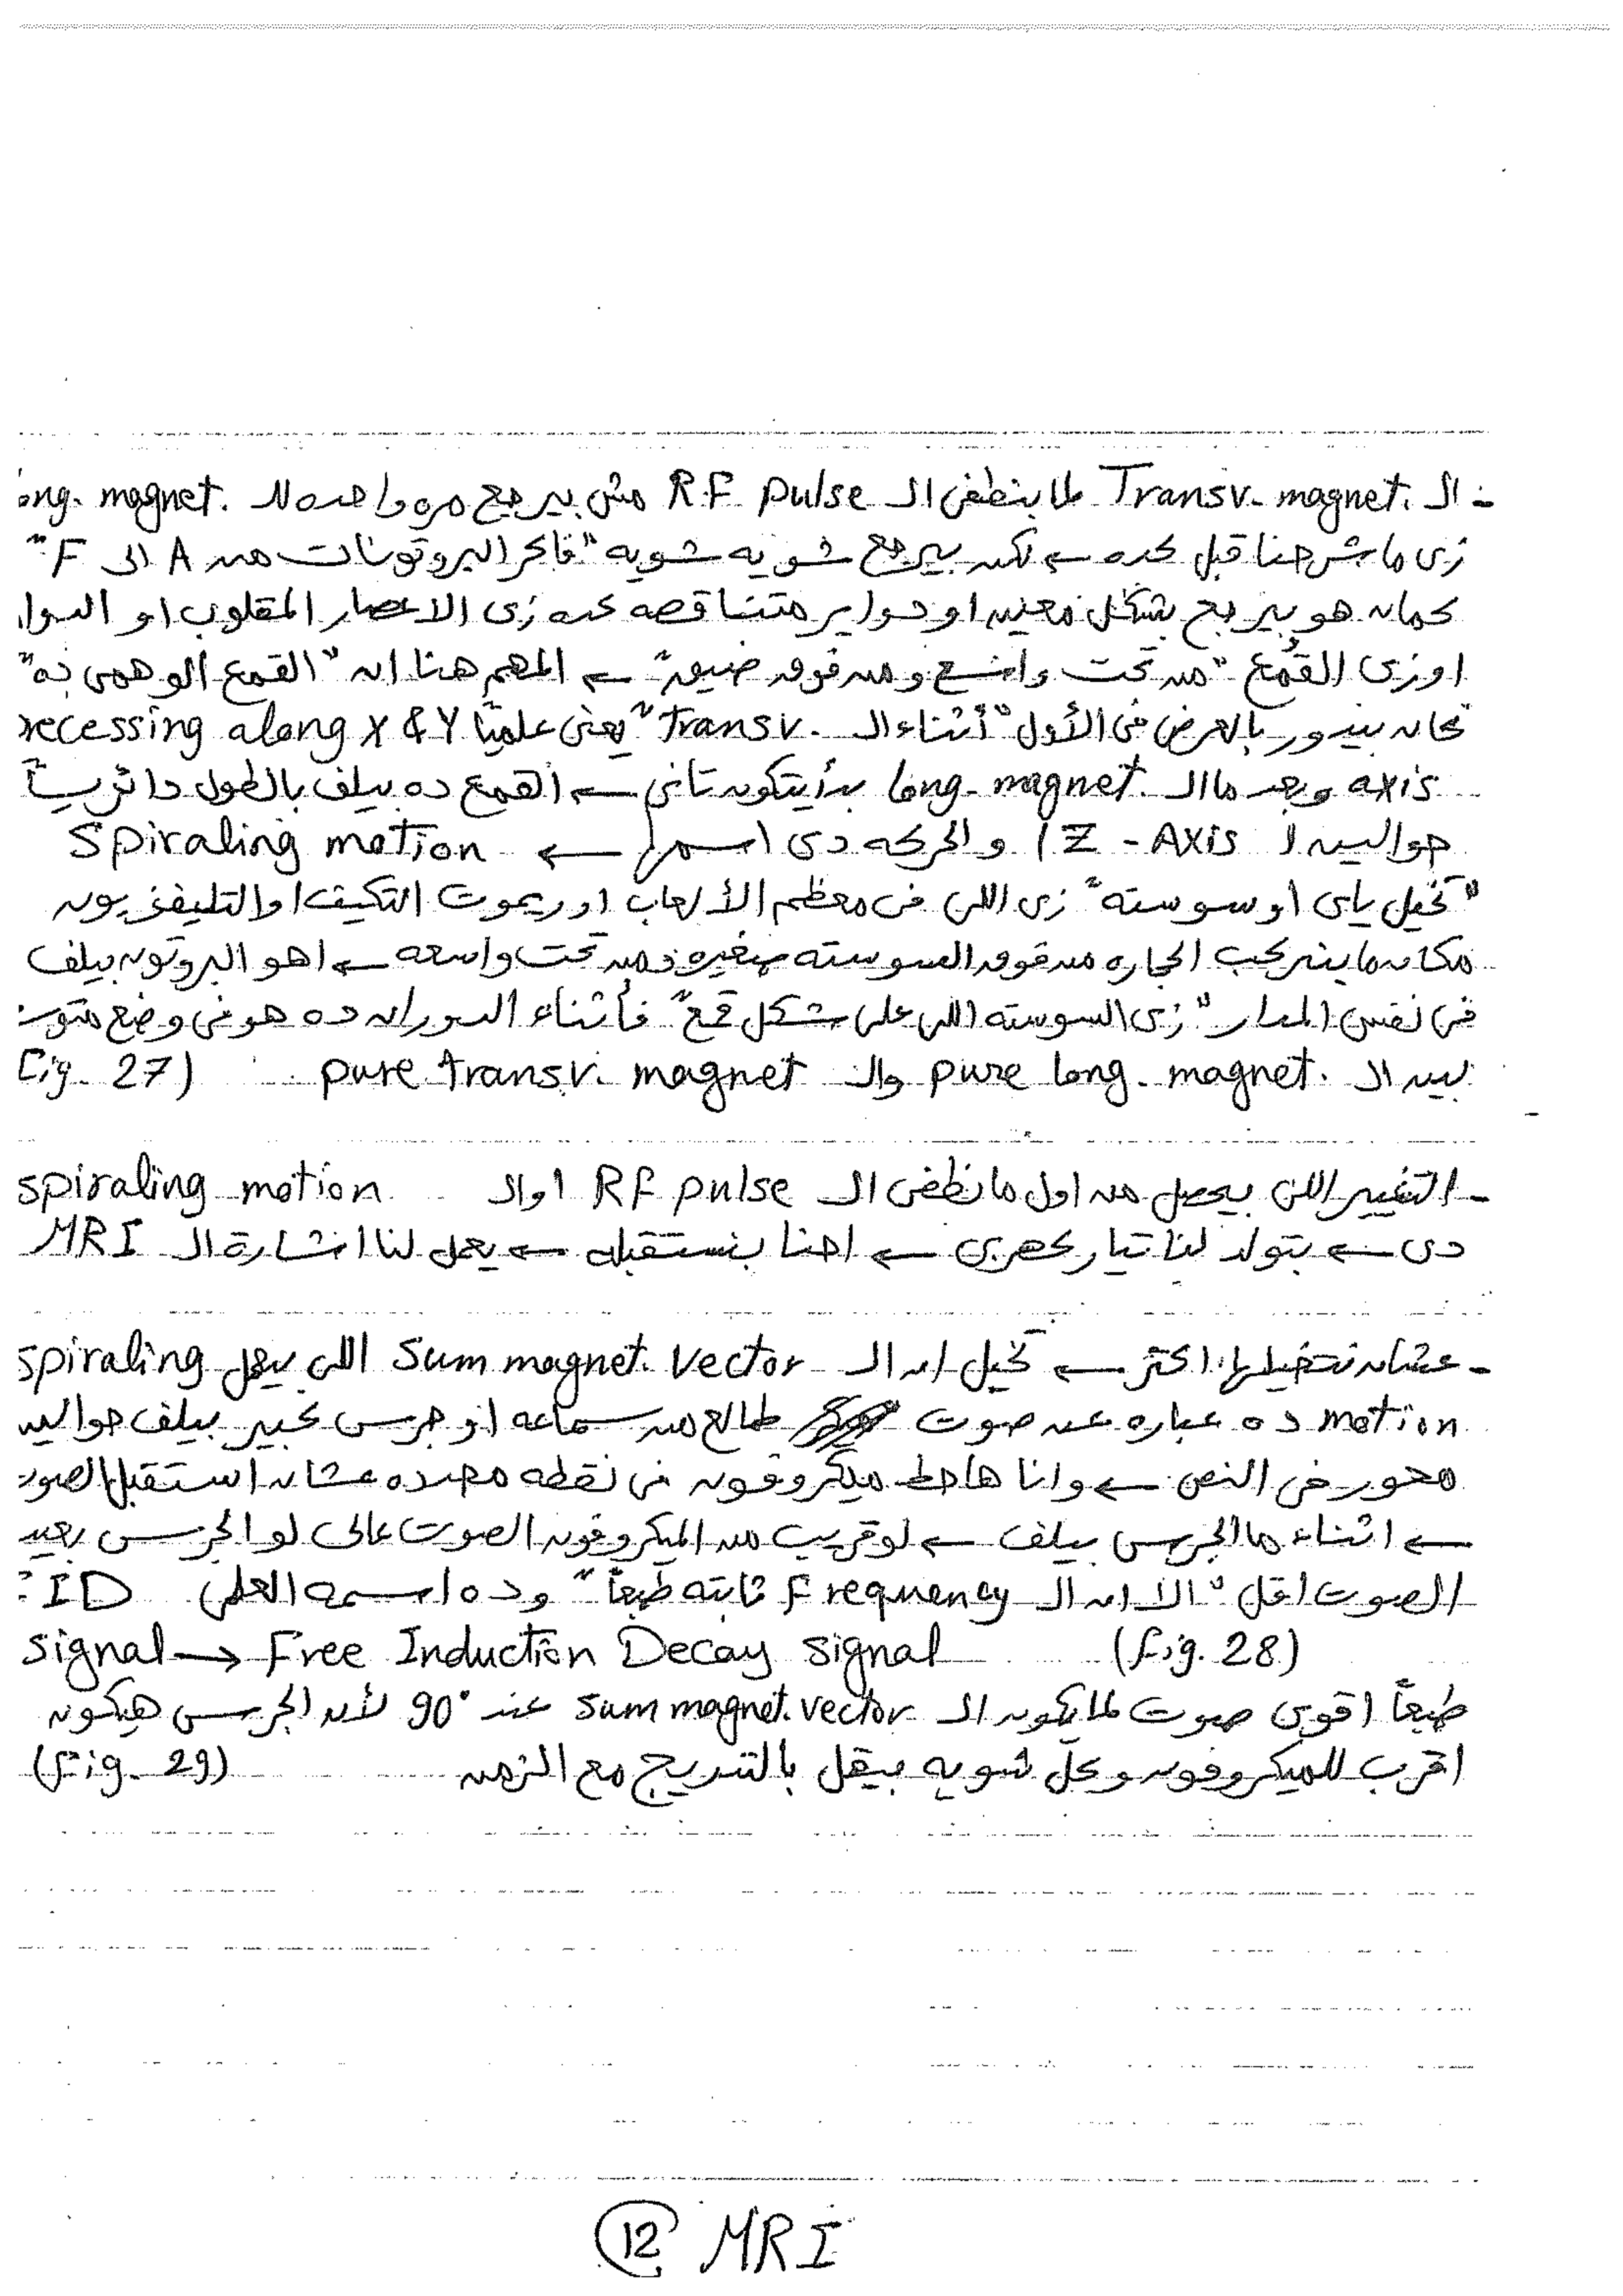 - الـ Transv. magnet. لما بنطفى الـ RF pulse مش بيرجع مره واحده للـ ong. magnet.
زى ما شرحنا قبل كده ← لكن بيرجع شويه شويه "فاكر البروتونات من A الى F"
كمان هو بيرجع بشكل معين او دواير متناقصه كده زى الاعصار المقلوب او
او زى القُمع "من تحت واسع ومن فوق ضيق" ← المهم هنا ان "القمع الوهمى ده"
كان بيدور بالعرض فى الأول "أثناء الـ Transv." يعنى علمياً recessing along X & Y
axis وبعد ما الـ long. magnet. بدأ يتكون تانى ← القمع ده بيلف بالطول
حوالين ( Z - Axis ) والحركه دى اسمها ← Spiraling motion
"تخيل ياى او سوسته" زى اللى فى معظم الألعاب او ريموت التكيف او التليفزيون
مكان ما بنركب الحجاره من فوق السوسته صغيره ومن تحت واسعه ← اهو البروتون بيلف
فى نفس المدار "زى السوسته اللى على شكل قمع" فأثناء الدوران ده هو فى وضع
بين الـ pure long. magnet. والـ pure transv. magnet fig. 27)
- التغيير اللى بيحصل من اول ما نطفى الـ RF pulse او الـ spiraling motion
دى ← بتولد لنا تيار كهربى ← احنا بنستقبله ← يعمل لنا اشارة الـ MRI
- عشان نتخيلها اكتر ← تخيل ان الـ Sum magnet. vector اللى بيعمل spiraling
motion ده عباره عن صوت طالع من سماعه او جرس كبير بيلف حوالين
محور فى النص ← وانا هاحط ميكروفون فى نقطه محدده عشان استقبل الصوت
← اثناء ما الجرس بيلف ← لو قريب من الميكروفون الصوت عالى لو الجرس بعيد
الصوت اقل "الا ان الـ Frequency ثابته طبعاً" وده اسمه العلمى ID
signal → Free Induction Decay signal (fig. 28)
طبعاً اقوى صوت لما يكون الـ sum magnet. vector عند 90° لأن الجرس هيكون
اقرب للميكروفون وكل شويه بيقل بالتدريج مع الزمن (fig. 29)
12 MRI